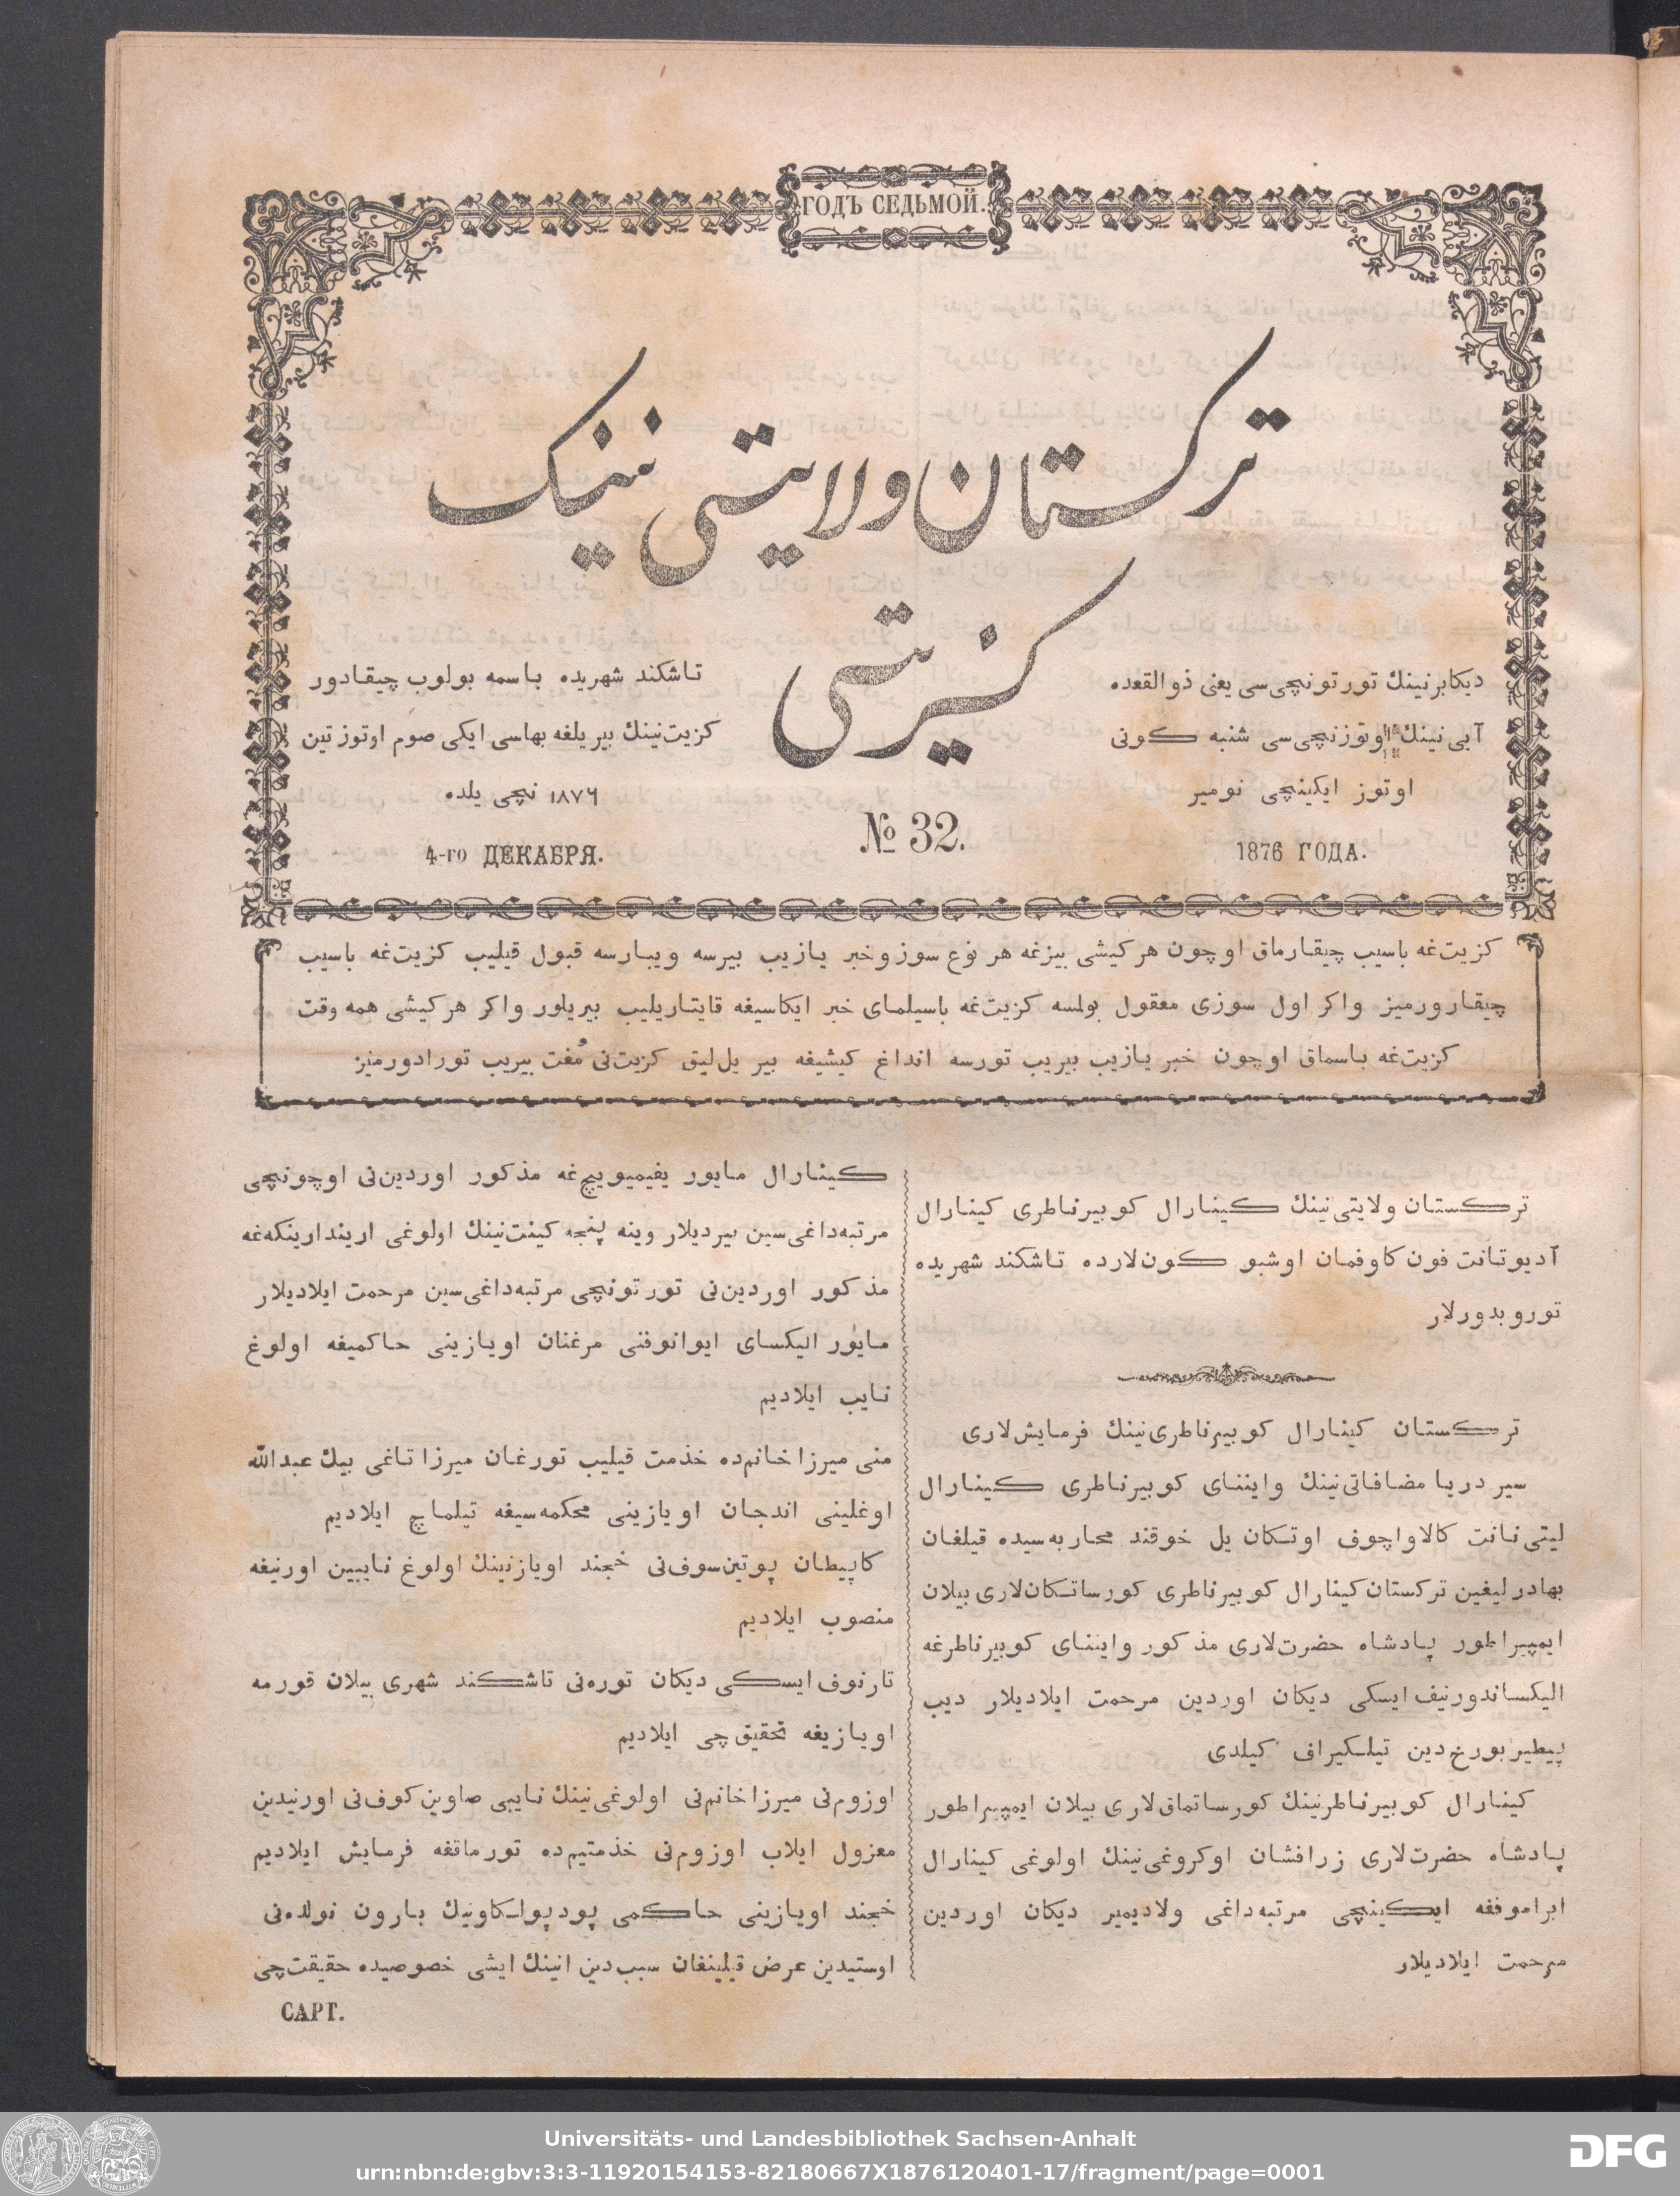 ГОДЪ СЕДЬМОЙ.
ترکستان ولایتی نینک
کزیتی
دیکابرنینك تورتونچی‌سی یعنی ذوالقعده
آیی نینك اوتوزنچی‌سی شنبه کونی
اوتوز ایکینچی نومیر
1876 ГОДА.
№ 32.
تاشکند شهریده باسمه بولوب چیقادور
کزیت‌نینك بیر یلغه بهاسی ایکی صوم اوتوز تین
۱۸۷۶ نچی یلده
4-го ДЕКАБРЯ.
کزیت‌غه باسیب چیقارماق اوچون هر کیشی بیزغه هر نوع سوز و خبر یازیب بیرسه ویبارسه قبول قیلیب کزیت‌غه باسیب
چیقارورمیز واکر اول سوزی معقول بولسه کزیت‌غه باسیلمای خبر ایکاسیغه قایتاریلیب بیریلور واکر هر کیشی همه وقت
کزیت‌غه باسماق اوچون خبر یازیب بیریب تورسه انداغ کیشیغه بیر یل‌لیق کزیت‌نی مُفت بیریب تورادورمیز
ترکستان ولایتی‌نینك کینارال کوبیرناطری کینارال
آدیوتانت فون کاوفمان اوشبو کون‌لارده تاشکند شهریده
توروبدورلار
ترکستان کینارال کوبیرناطری‌نینك فرمایش‌لاری
سیر دریا مضافاتی‌نینك واینّنای کوبیرناطری کینارال
لیتی نانت کالاواچوف اوتکان یل خوقند محاربه‌سیده قیلغان
بهادرلیغین ترکستان کینارال کوبیرناطری کورساتکان‌لاری بیلان
ایمپیراطور پادشاه حضرت‌لاری مذکور واینّنای کوبیرناطرغه
الیکساندورنیف ایسکی دیکان اوردین مرحمت ایلادیلار دیب
پیطیربورخ‌دین تیلکیراف کیلدی
کینارال کوبیرناطرنینك کورساتماق‌لاری بیلان ایمپیراطور
پادشاه حضرت‌لاری زرافشان اوکروغی‌نینك اولوغی کینارال
ابراموفغه ایکینچی مرتبه‌داغی ولادیمیر دیکان اوردین
مرحمت ایلادیلار
کینارال مایور یفیمیوییچ‌غه مذکور اوردین‌نی اوچونچی
مرتبه‌داغی‌سین بیردیلار وینه پنجه کینت‌نینك اولوغی اریندارینکه‌غه
مذکور اوردین‌نی تورتونچی مرتبه‌داغی‌سین مرحمت ایلادیلار
مایور الیکسای ایوانوفنی مرغنان اویازینی حاکمیغه اولوغ
نایب ایلادیم
منی میرزاخانم‌ده خذمت قیلیب تورغان میرزا تاغی بیك عبدالله
اوغلینی اندجان اویازینی محکمه‌سیغه تیلماچ ایلادیم
کاپیطان پوتین‌سوف‌نی خجند اویازنینك اولوغ نایبین اورنیغه
منصوب ایلادیم
تارنوف ایسکی دیکان توره‌نی تاشکند شهری بیلان قورمه
اویازیغه تحقیق‌چی ایلادیم
اوزوم‌نی میرزاخانم‌نی اولوغی‌نینك نایبی صاوین‌کوف‌نی اورنیدین
معزول ایلاب اوزوم‌نی خذمتیم‌ده تورماقغه فرمایش ایلادیم
خجند اویازینی حاکمی پودپولکاونیك بارون نولده‌نی
اوستیدین عرض قیلینغان سبب‌دین انینك ایشی خصوصیده حقیقت‌چی
САРТ.
Universitäts- und Landesbibliothek Sachsen-Anhalt
urn:nbn:de:gbv:3:3-11920154153-82180667X1876120401-17/fragment/page=0001
DFG